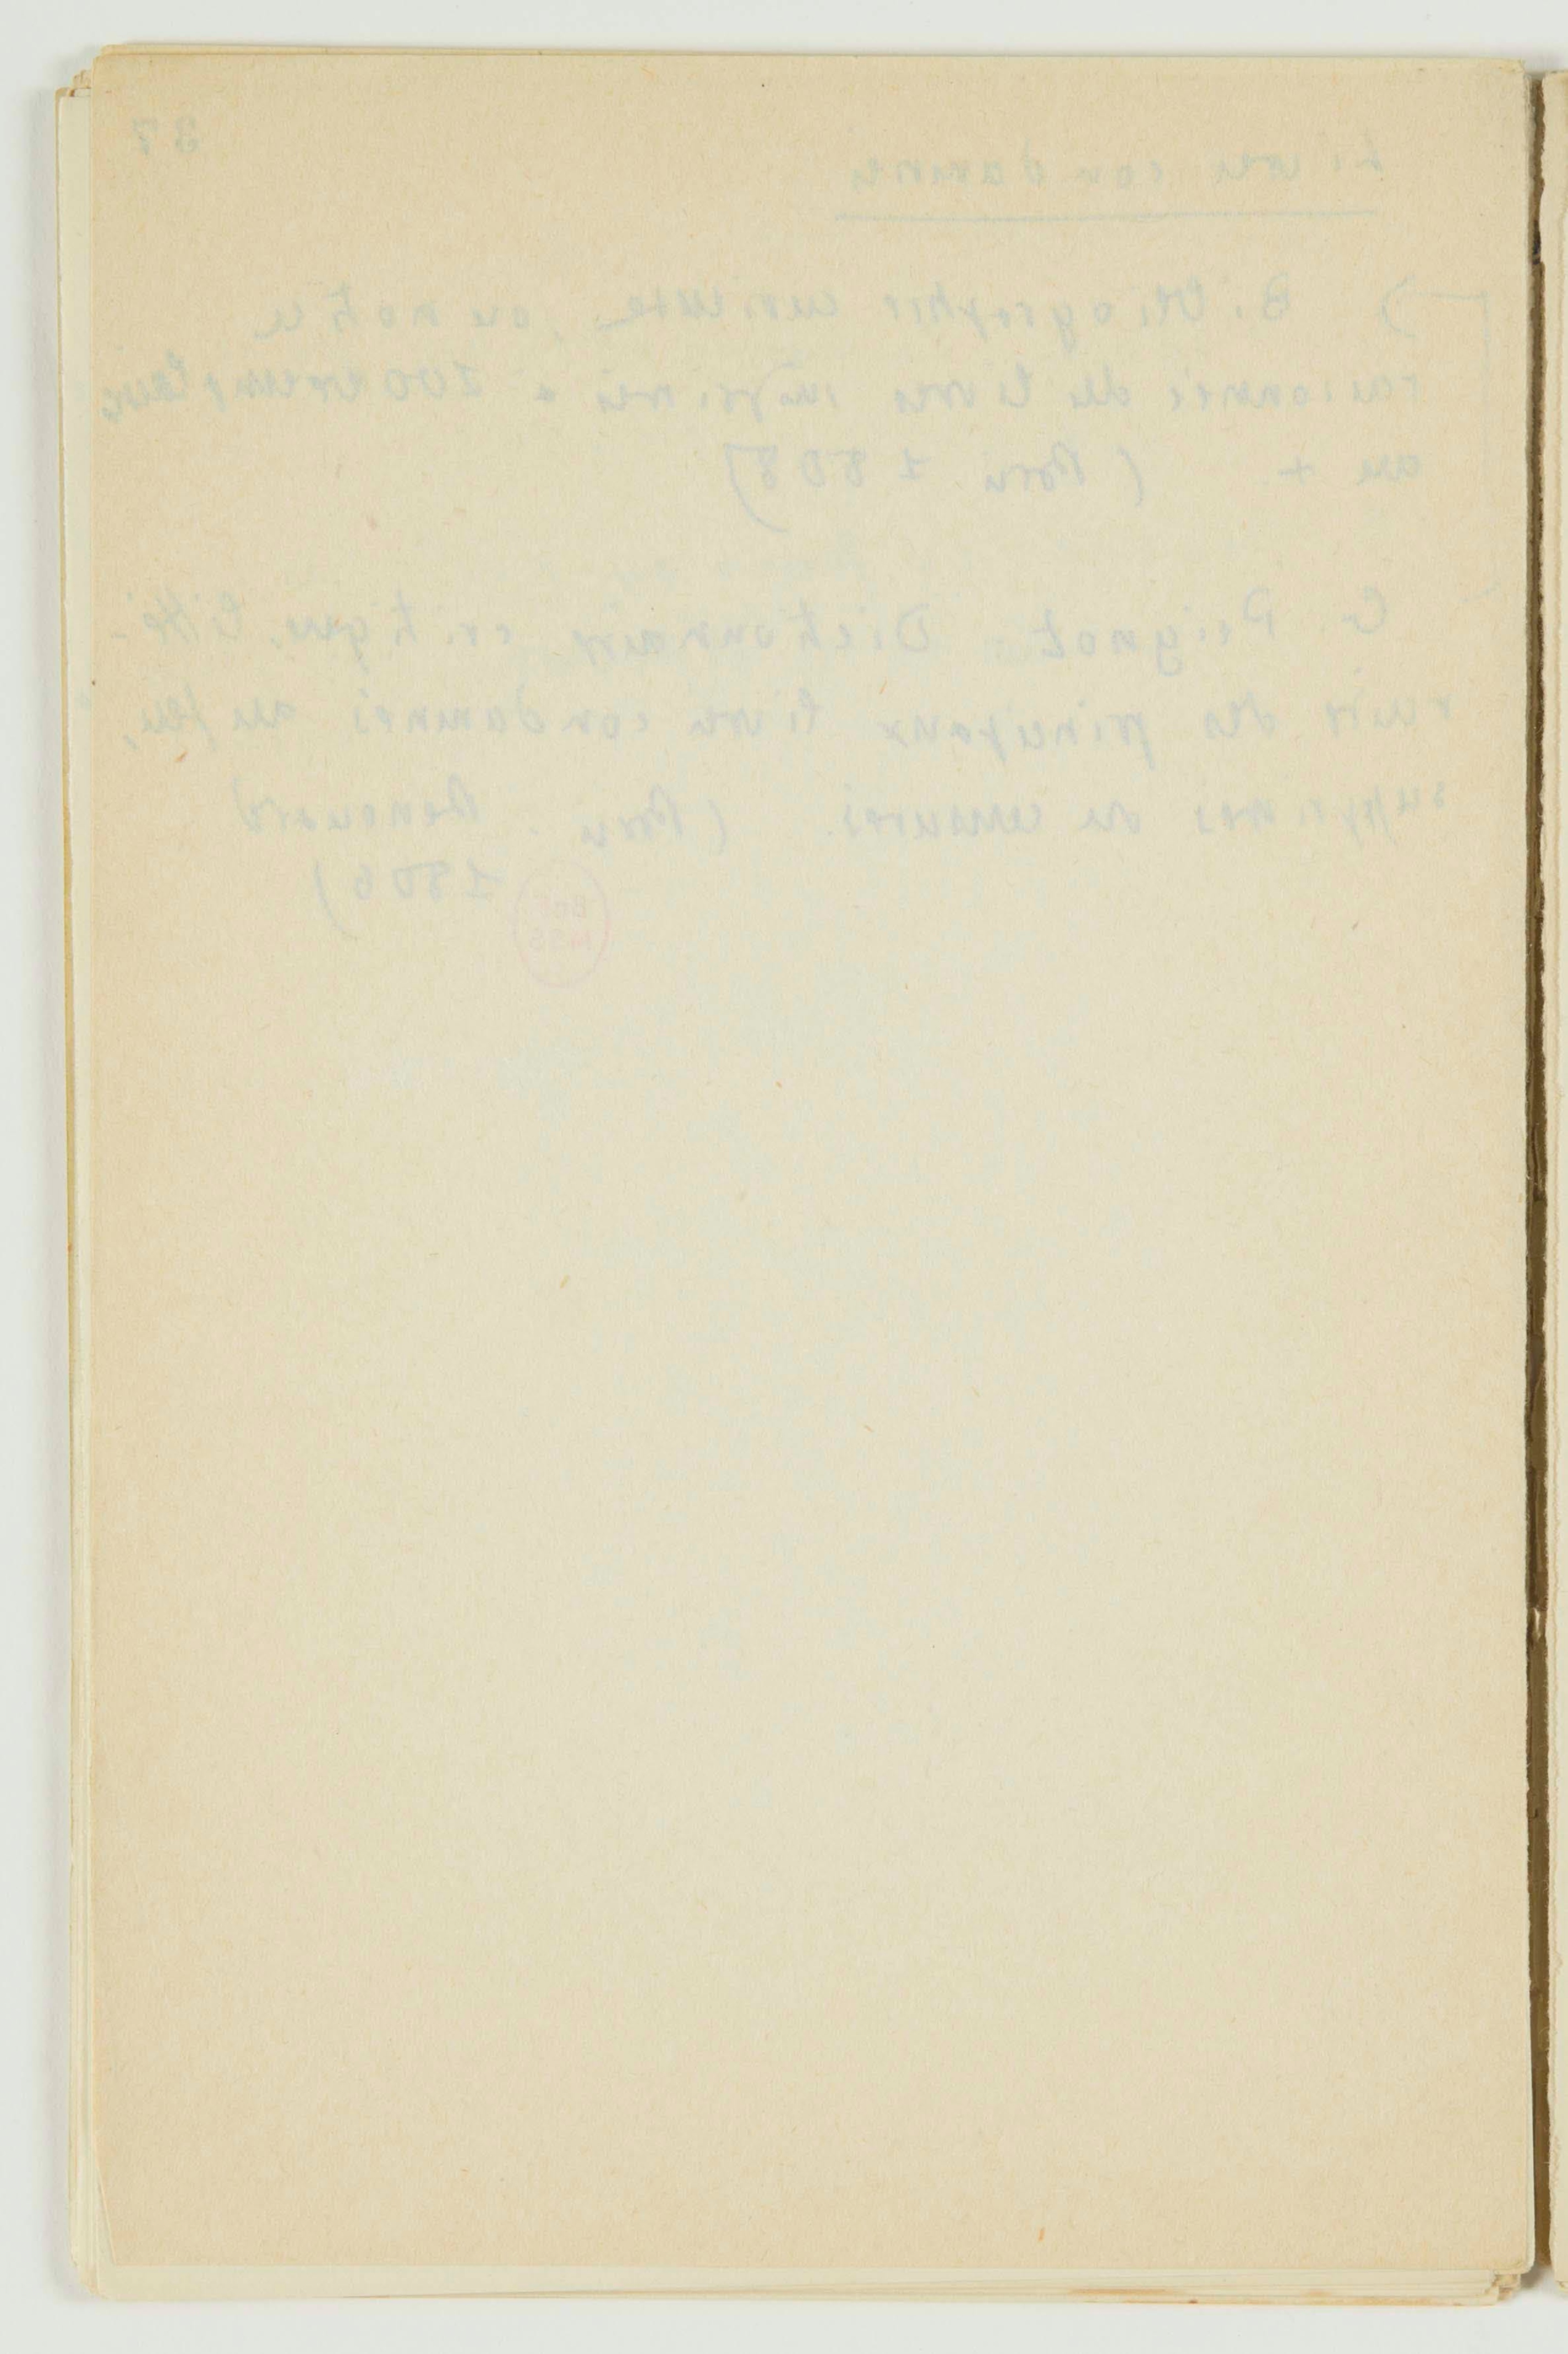 37
Livres condamnés
) Bibliographie curieuse, ou notice
raisonnée des livres imprimés à 100 exemplaires
au + (Paris 1808)
G. Peignot Dictionnaire critique, litté-
raire des principaux livres condamnés au feu,
supprimés ou censurés. (Paris. Renouard
1806)
BnF
MSS